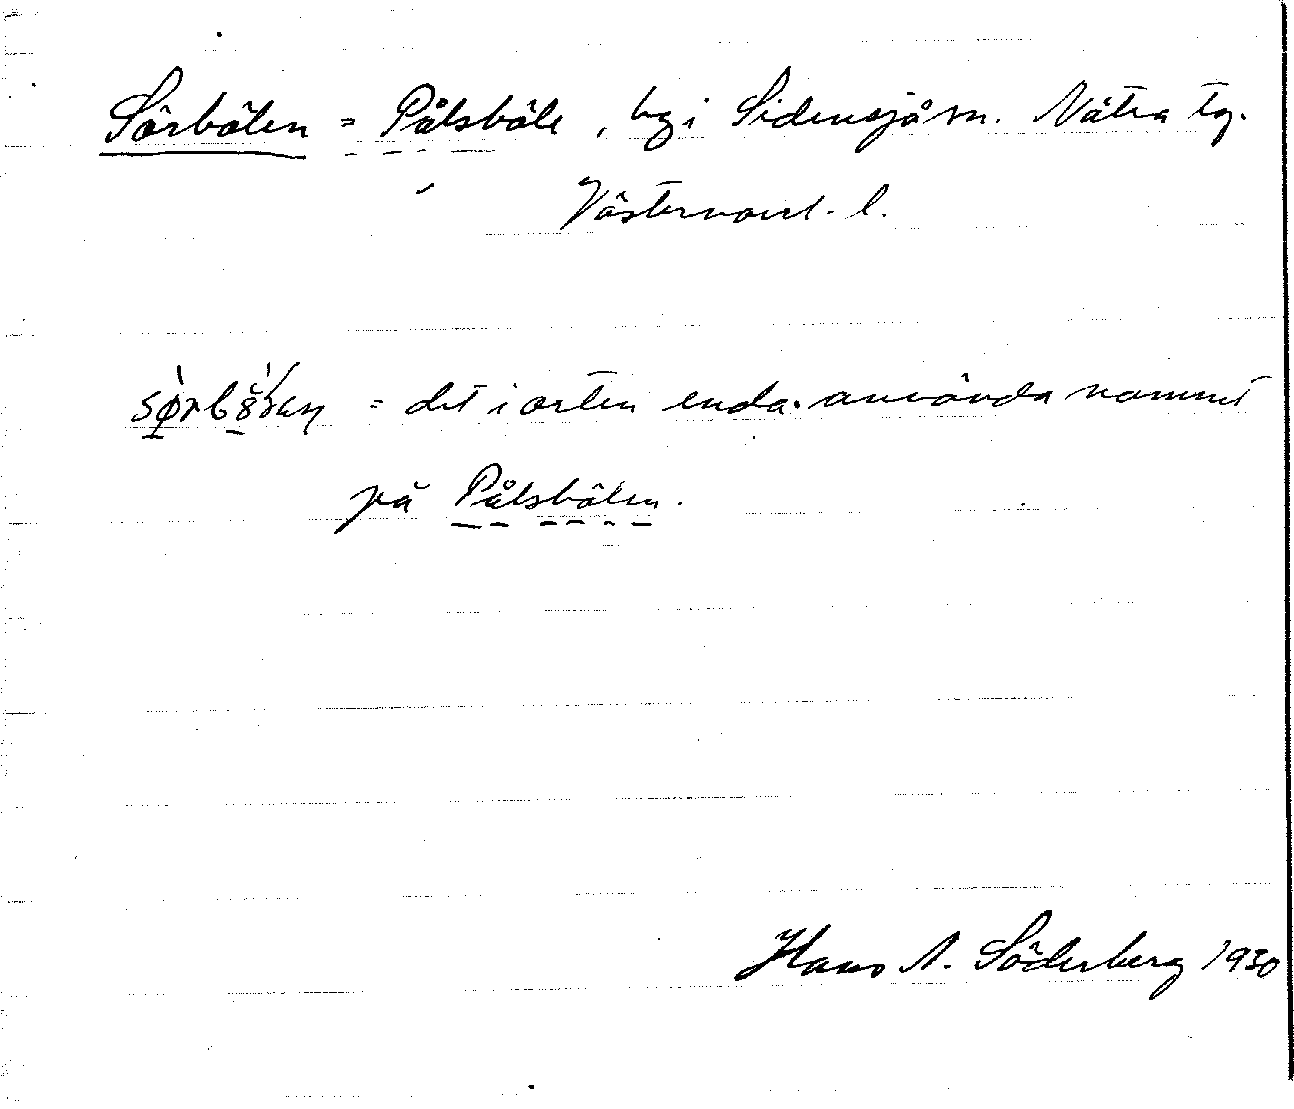 Sörbölen = Pålsböle, by i Sidensjö sn. Nätra tg.
Västernorrl. l.
= det i orten enda använda namnet
på Pålsbölen.
Hans A. Söderberg 1930